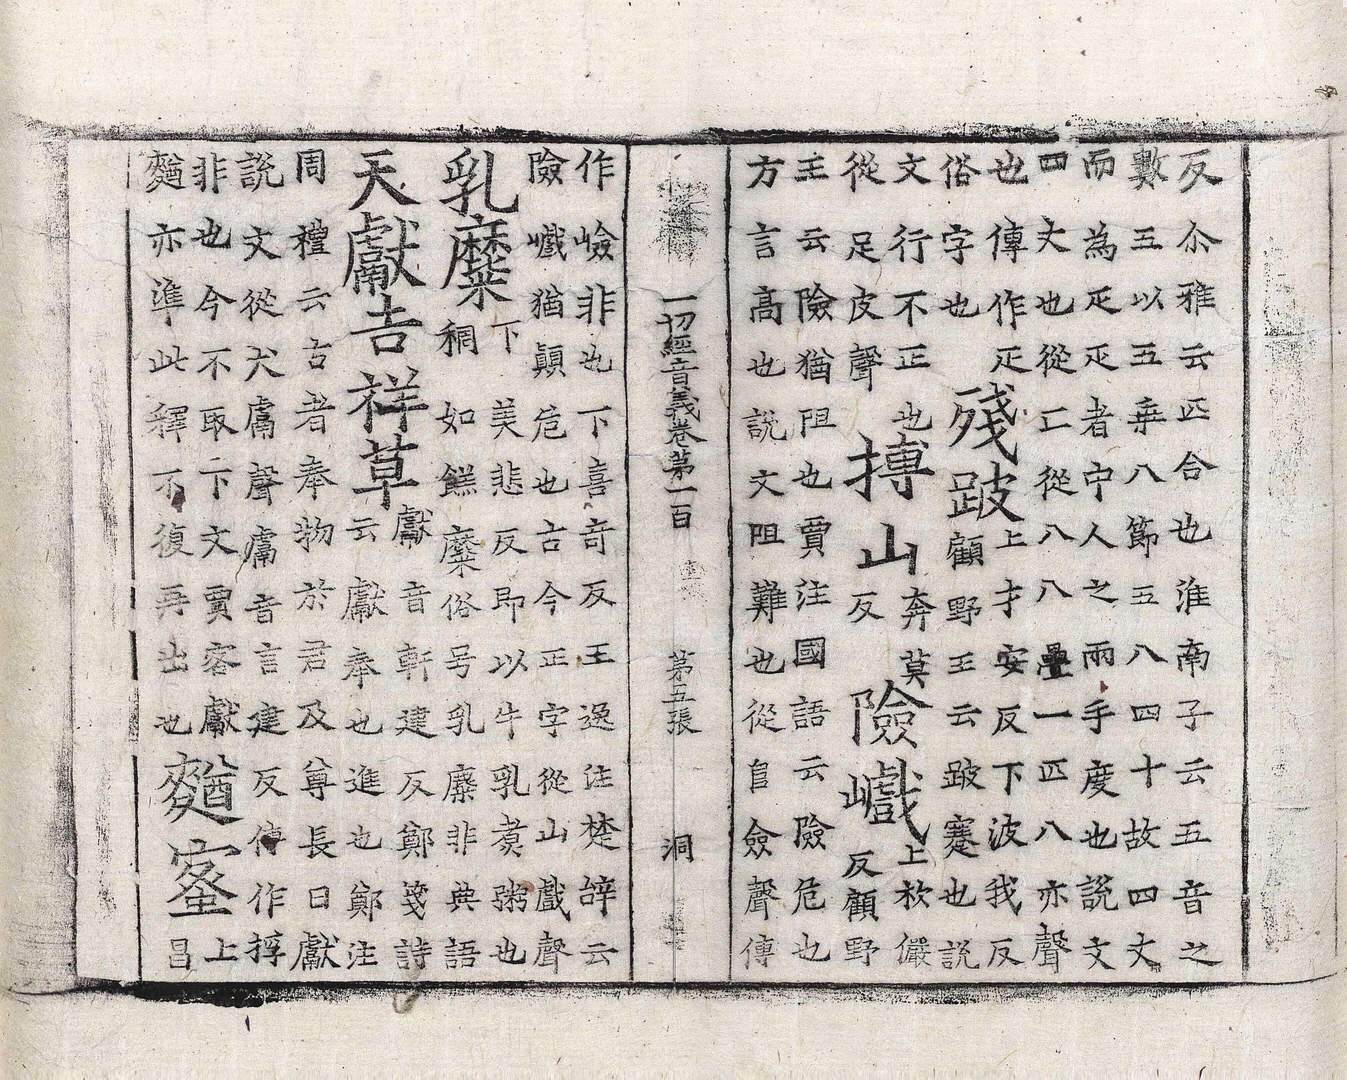 反尒雅云匹合也淮南子云五音之
數五以五乘八節五八四十故四丈
而為疋疋者中人之兩手度也說文
四丈也從匚從八八疊一匹八亦聲
也傳作疋
俗字也
殘跛
上才安反下波我反
顧野王云跛蹇也說
文行不正也
從足皮聲
搏山
奔莫
反
險巇
上杴儼
反顧野
王云險猶阻也賈注國語云險危也
方言高也說文阻難也從𨸏僉聲傳
一切經音義卷第一百 第五張 洞
作嶮非也下喜奇反王逸注楚辭云
險巇猶顛危也古今正字從山戲聲
乳糜
下美悲反即以牛乳煑粥也
稠如餻糜俗号乳糜非典語
天獻吉祥草
獻音軒建反鄭箋詩
云獻奉也進也鄭注
周禮云古者奉物於君及尊長曰獻
說文從犬鬳聲鬳音言建反傳作
非也今不取下文賈客獻
䴬亦準此釋不復再出也
䴬蜜
上
昌